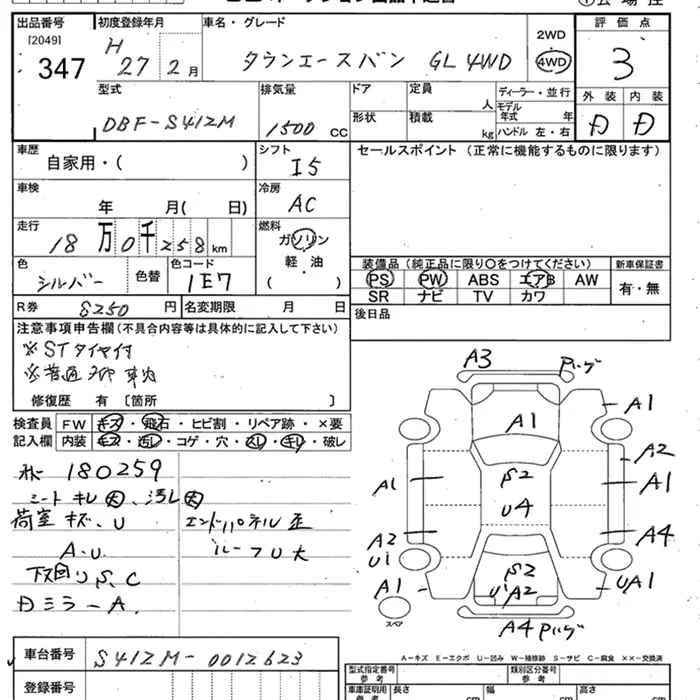 出品番号
[2049]
347
初度登録年月
H 27 2月
車名・グレード
タウンエースバン GL 4WD
2WD
4WD
評価点
3
型式
DBF-S412M
排気量
1500 CC
ドア
定員
人
形状
積載
kg
ディーラー・並行
モデル年式 年
ハンドル 左・右
外装 内装
D D
車歴
自家用・( )
シフト
I5
セールスポイント (正常に機能するものに限ります)
車検
年 月( 日)
冷房
AC
走行
18万0千258km
燃料
ガソリン
軽・油
( )
色
シルバー
色替
色コード
1E7
装備品 (純正品に限り○をつけてください)
PS PW ABS エアB AW
SR ナビ TV カワ
新車保証書
有・無
R券 8250 円
名変期限 月 日
後日品
注意事項申告欄 (不具合内容等は具体的に記入して下さい)
※STタイヤ付
修復歴 有 〔箇所 〕
検査員記入欄
FW キズ・飛石・ヒビ割・リペア跡・×要
内装 キズ・汚レ・コゲ・穴・スレ・キレ・破レ
180259
シートキレ大、汚レ大
荷室キズ、U
エンドパネル歪
A.U.
ルーフU大
下回りS、C
Dミラー A.
A3
A1
A1
A2
A1
S2
U4
A1
A4
A2
U1
S2
A1
UA1
スペア
A4
A-キズ E-エクボ U-凹み W-補修跡 S-サビ C-腐食 ××-交換済
車台番号
S412M-0012623
登録番号
型式指定番号
参考
類別区分番号
車庫証明用
参考
長さ cm
幅 cm
高さ cm